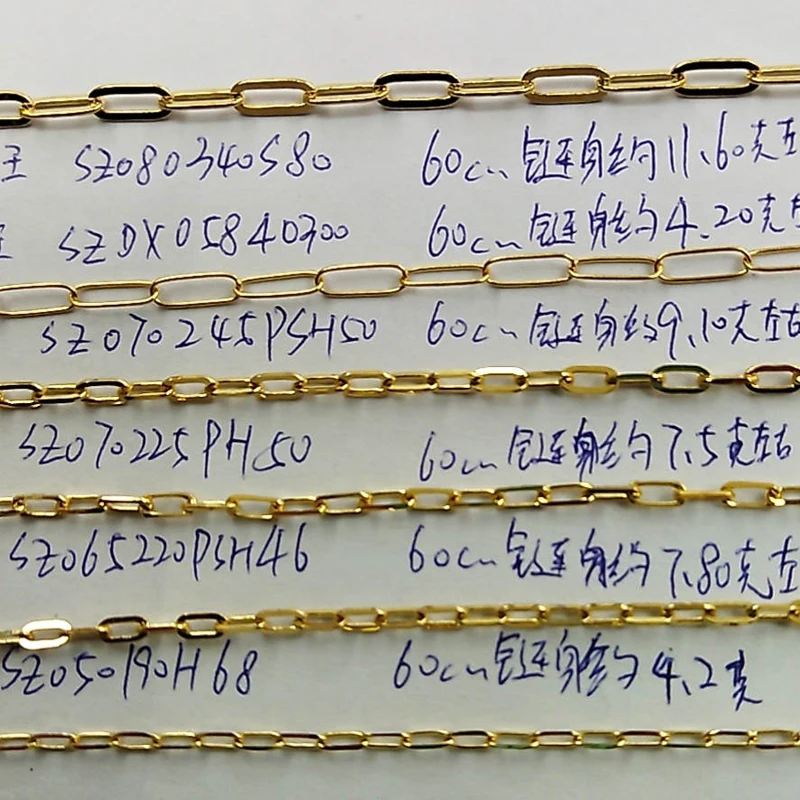 王 SZ080340S80 60cm 链身约11.60克左
SZDX05840300 60cm 链身约4.20克左
SZ070245PSH50 60cm 链身约9.10克左右
SZ070225PH50 60cm 链身约7.5克左右
SZ065220PSH46 60cm 链身约7.80克左
SZ050190H68 60cm 链身约4.2克